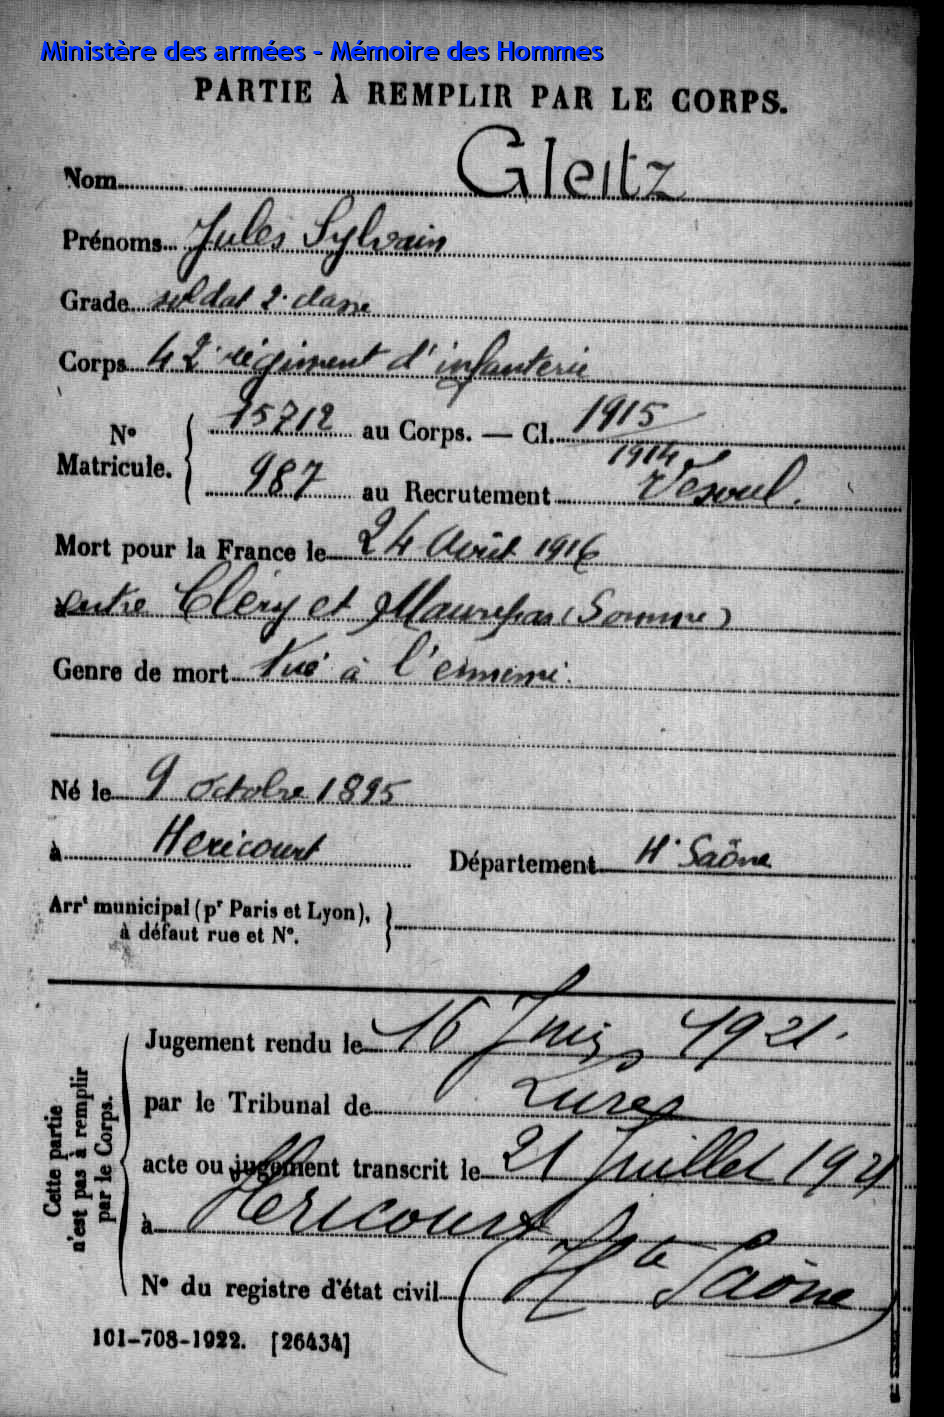 Ministère des armées - Mémoire des Hommes
PARTIE À REMPLIR PAR LE CORPS.
Nom Gleitz
Prénoms Jules Sylvain
Grade soldat 2e classe
Corps 42e régiment d'infanterie
No Matricule. { 15712 au Corps. — Cl. 1915
1914
987 au Recrutement Vesoul.
Mort pour la France le 24 Août 1916
entre Cléry et Maurepas (Somme)
Genre de mort Tué à l'ennemi.
Né le 9 Octobre 1895
à Hericourt Département Hte Saône
Arrt municipal (pr Paris et Lyon),
à défaut rue et No.
Cette partie n'est pas à remplir par le Corps.
Jugement rendu le 16 Juin 1921.
par le Tribunal de Lure
acte ou jugement transcrit le 21 Juillet 1921
à Hericourt
No du registre d'état civil (Hte Saône)
101-708-1922. [26434]